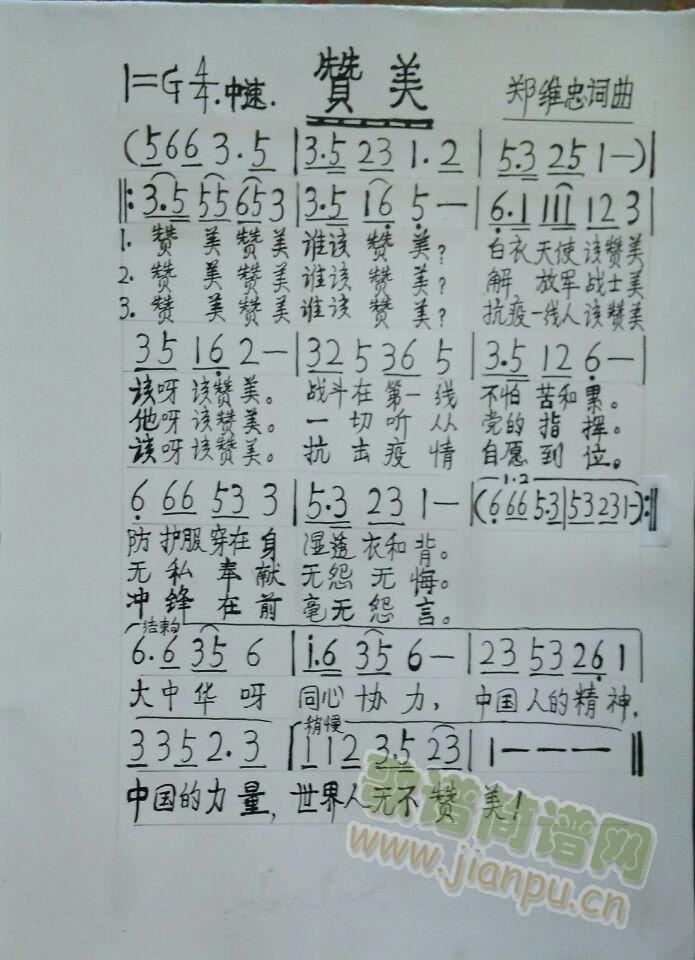 1=G 4/4 中速. 賛美 郑维忠词曲
(566 3.5 | 3.5 23 1.2 | 5.3 25 1—)
‖: 3.5 55 653 | 3.5 16 5 — | 6.1 111 12 3
1. 赞 美 赞美 谁该 赞 美? 白衣天使该赞美
2. 赞 美 赞美 谁该 赞 美? 解 放军战士美
3. 赞 美 赞美 谁该 赞 美? 抗疫一线人该赞美
35 16 2 — | 32 5 36 5 | 3.5 12 6 —
该呀该赞美。 战斗在第一线 不怕苦和累。
他呀该赞美。 一切听从 党的指挥。
该呀该赞美。 抗击疫情 自愿到位。
6 66 53 3 | 5.3 23 1 — | 1.2 (6 66 53.3 | 53 23 1—) :‖
防护服穿在身 湿透衣和背。
无私奉献 无怨无悔。
冲锋在前 毫无怨言。
结束句
6.6 35 6 | i.6 35 6 — | 23 53 26 1
大中华呀 同心协力, 中国人的精神,
稍慢
3 35 2.3 | 1 12 3.5 23 | 1 — — — ‖
中国的力量, 世界人无不赞美!
歌谱简谱网
www.jianpu.cn